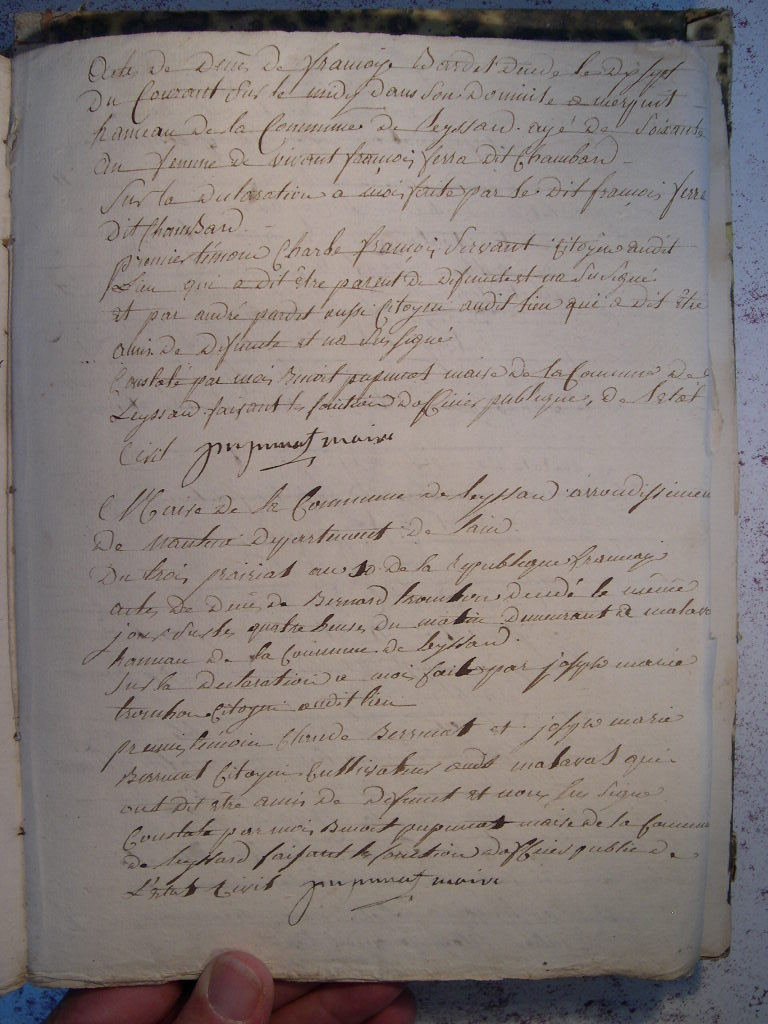 Actes de Deuès de françoise Bordet Duède le Dix sept
Du Courant Sur le midy dans Son Domicile a merpuit
hameau de la Commune de Leyssard. agé de Soixante
an femme de vivant françois ferra dit Chambard
Sur la declaration a moi faite par le dit françois ferra
dit Chambard.
premier témoin Charle françois Servant Citoyen audit
Lieu qui a dit être parent de defunte et na Su Signé
et par andré pardet aussi Citoyen audit lieu qui a dit être
amis de defunte et na Sus signé
Constaté par moi Benoit pupunat maire de la Commune de
Leyssard faisant les fonction D'officier publique, de L'etat
Civil pupunat maire
Maire de la Commune de Leyssard arrondissement
De nantua Departement de Lain.
Du trois prairial an 10 de la republique française
actes de Deuès de Bernard trombon decedé le même
jour Sur les quatre heures du matin demeurant a malava
hameau de la Commune de Leyssard.
Sur la Declaration a moi faite par joseph marie
trombon Citoyen audit lieu
premier témoin Claude Bernuat et joseph marie
Bernuat Citoyen Cultivateur audit malaval qui
ont dit être amis de defunt et nons Su Signé
Constate par moi Benoit pupunat maire de la Commune
de Leyssard faisant les fonction d'officier public de
L'etat Civil pupunat maire